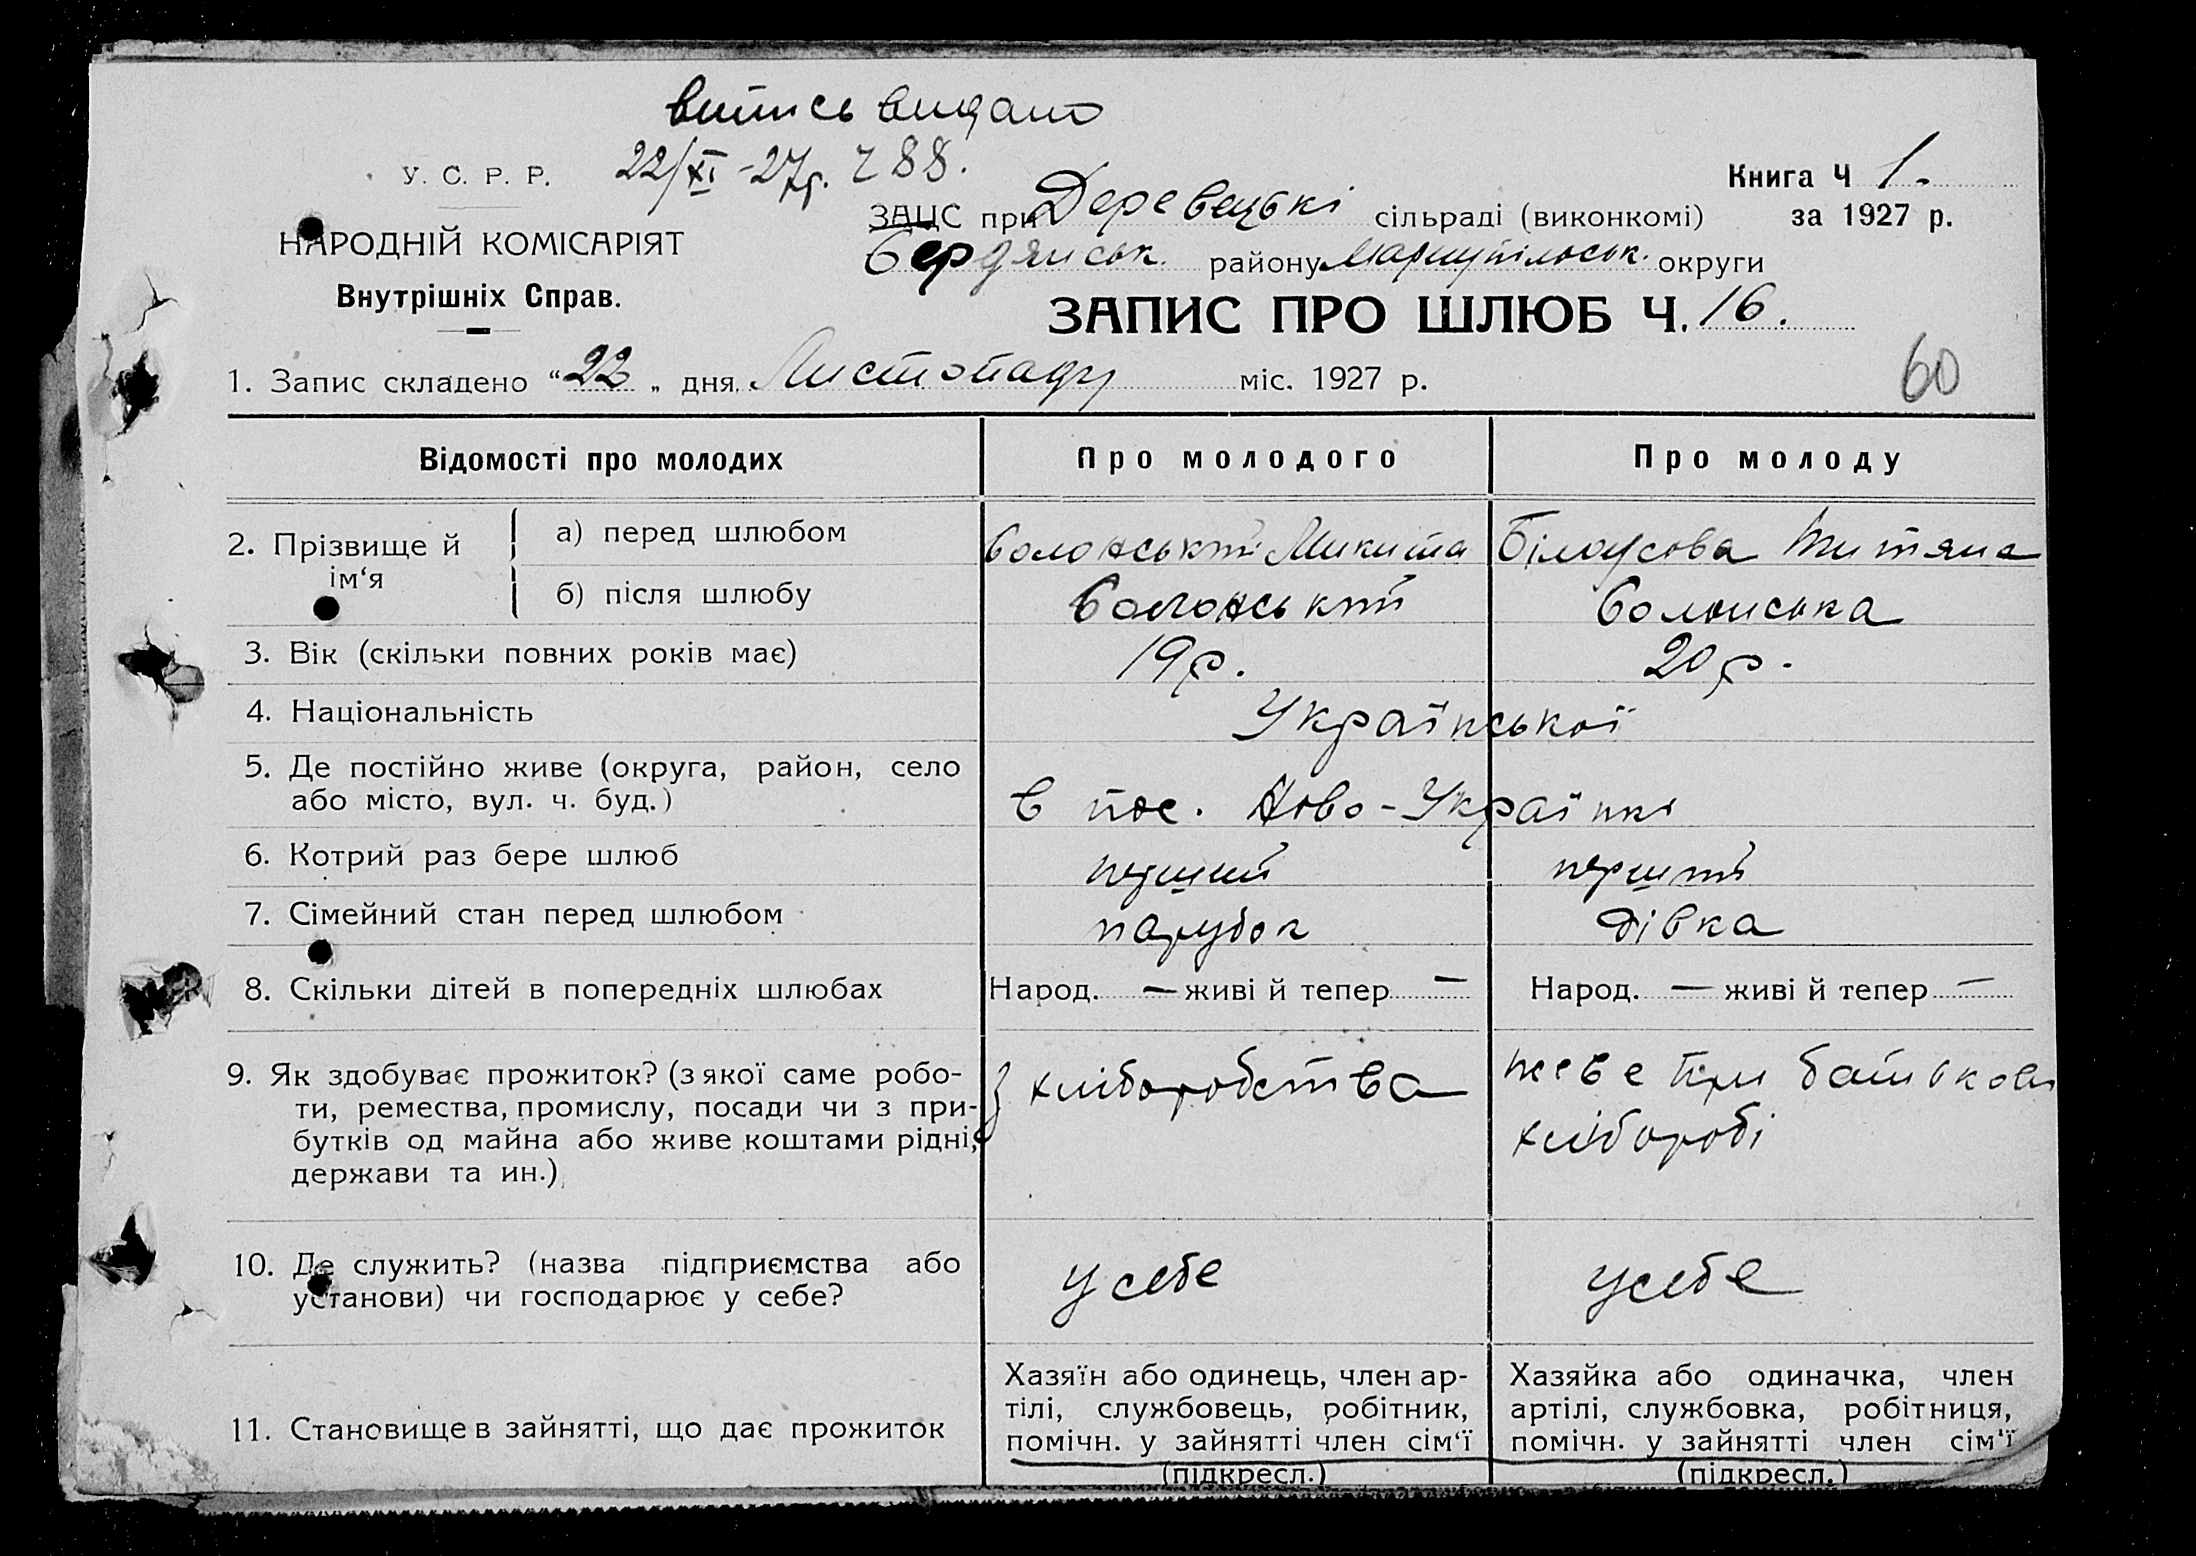 витись видано
22/XI-27р. ч 88.
У. С. Р. Р.
Книга Ч 1.
ЗАЦС при Деревецькі сільраді (виконкомі) за 1927 р.
НАРОДНІЙ КОМІСАРІЯТ
Бердянськ. району Мариупільськ. округи
Внутрішніх Справ.
ЗАПИС ПРО ШЛЮБ Ч. 16.
1. Запис складено “22„ дня Листопаду міс. 1927 р.
60
Відомості про молодих Про молодого Про молоду
2. Прізвище й ім‘я
а) перед шлюбом Болонський Микита Білоусова Титяна
б) після шлюбу Болонський Болонська
3. Вік (скільки повних років має) 19 р. 20 р.
4. Національність Української
5. Де постійно живе (округа, район, село
або місто, вул. ч. буд.) в пос. Ново-Українкі
6. Котрий раз бере шлюб перший перший
7. Сімейний стан перед шлюбом парубок дівка
8. Скільки дітей в попередніх шлюбах Народ. — живі й тепер — Народ. — живі й тепер —
9. Як здобуває прожиток? (з якої саме робо-
ти, ремества, промислу, посади чи з при-
бутків од майна або живе коштами рідні,
держави та ин.)
з хліборобства
живе при батькови
хліборобі
10. Де служить? (назва підприємства або
установи) чи господарює у себе?
у себе у себе
11. Становище в зайнятті, що дає прожиток
Хазяїн або одинець, член ар-
тілі, службовець, робітник,
помічн. у зайнятті член сім‘ї
(підкресл.)
Хазяйка або одиначка, член
артілі, службовка, робітниця,
помічн. у зайнятті член сім‘ї
(підкресл.)